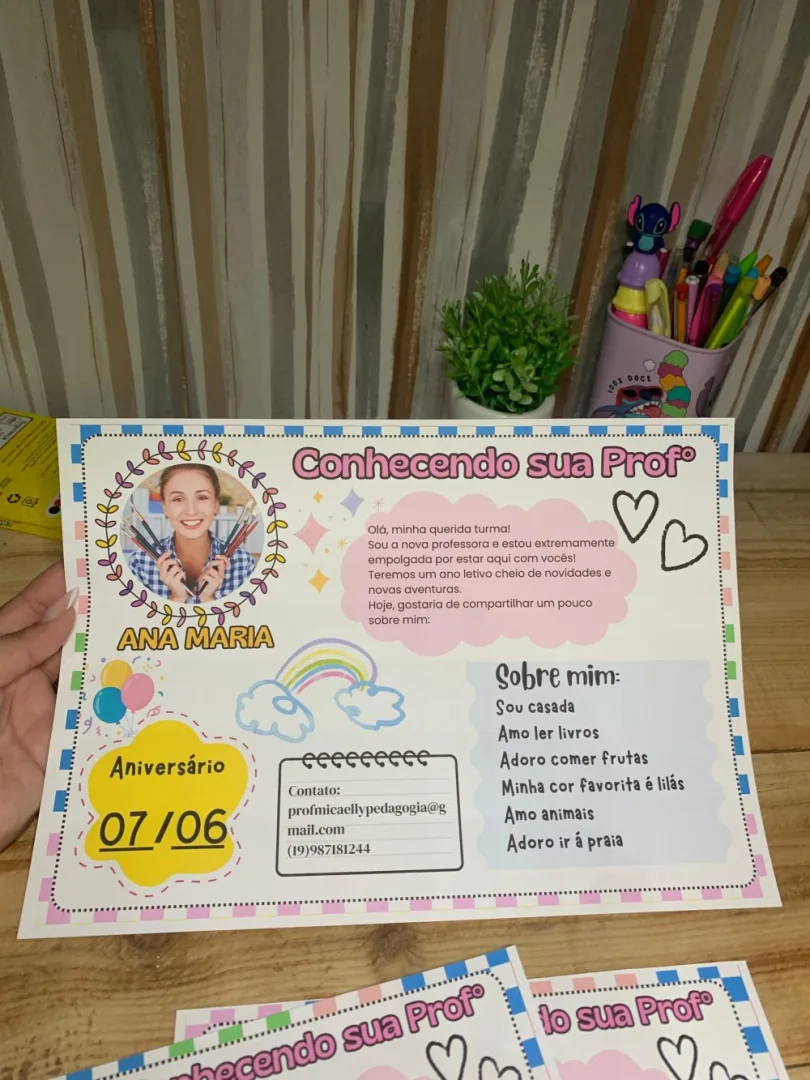 100% DOCE
Conhecendo sua Profº
Olá, minha querida turma!
Sou a nova professora e estou extremamente
empolgada por estar aqui com vocês!
Teremos um ano letivo cheio de novidades e
novas aventuras.
Hoje, gostaria de compartilhar um pouco
sobre mim:
ANA MARIA
Sobre mim:
Sou casada
Amo ler livros
Adoro comer frutas
Minha cor favorita é lilás
Amo animais
Adoro ir á praia
Aniversário
07/06
Contato:
profmicaellypedagogia@g
mail.com
(19)987181244
hecendo sua Profº
do sua Profº